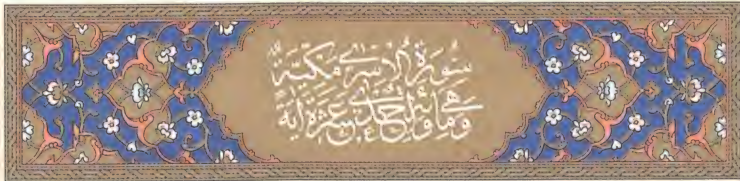 سُورَةُ الْإِسْرَى مَكِّيَّةٌ
وَهِيَ مِائَةٌ وَإِحْدَى عَشْرَةَ آيَةً